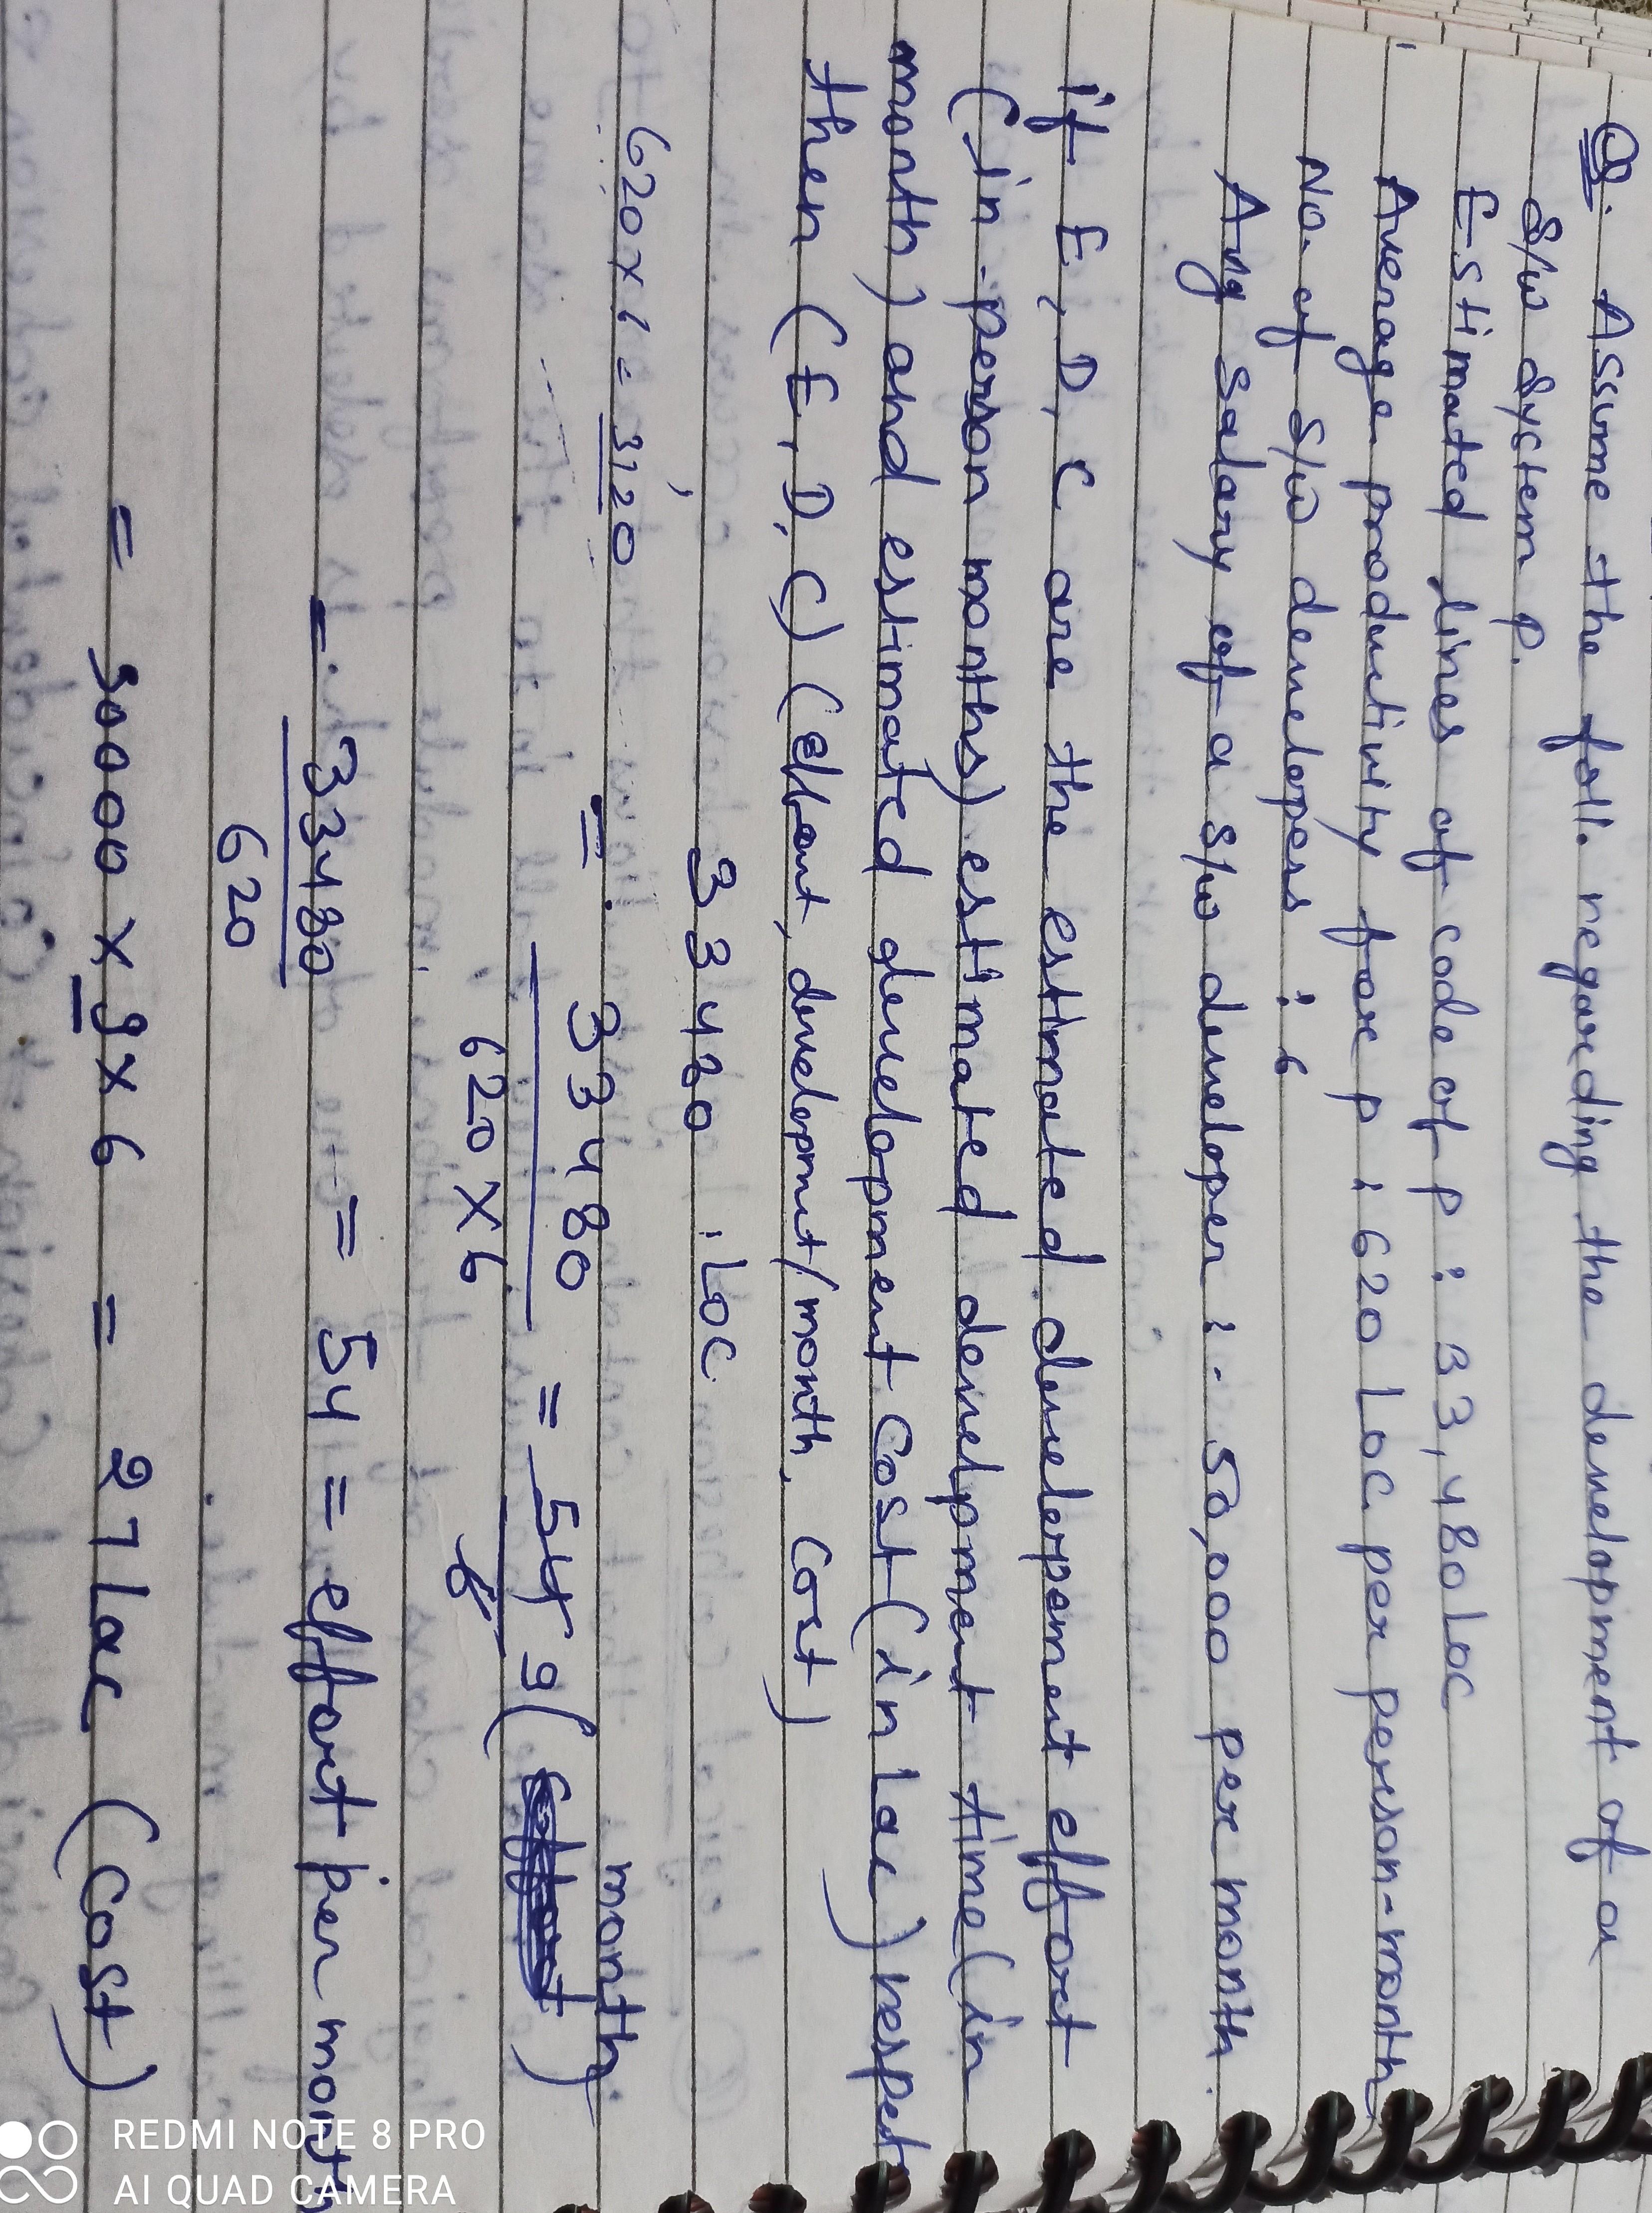 Q. Assume the foll. regarding the development of a
S/w system P.
Estimated lines of code of P : 33,480 LOC
Average productivity for P : 620 LOC per person-month
No. of S/w developers : 6
Avg salary of a s/w developer :- 50,000 per month.
if E, D, C are the estimated development effort
(in person months) estimated develpment time (in
month) and estimated development Cost (in Lac) respect
then (E, D, C) (effort, develepmnt/month, Cost)
33480 LOC
620 x 6 = 3120
= 33480 / 620 x 6 = 54 / 6 9 ( month )
= 33480 / 620 = 54 = effort per month
= 50000 x 9 x 6 = 27 lac (Cost)
REDMI NOTE 8 PRO
AI QUAD CAMERA